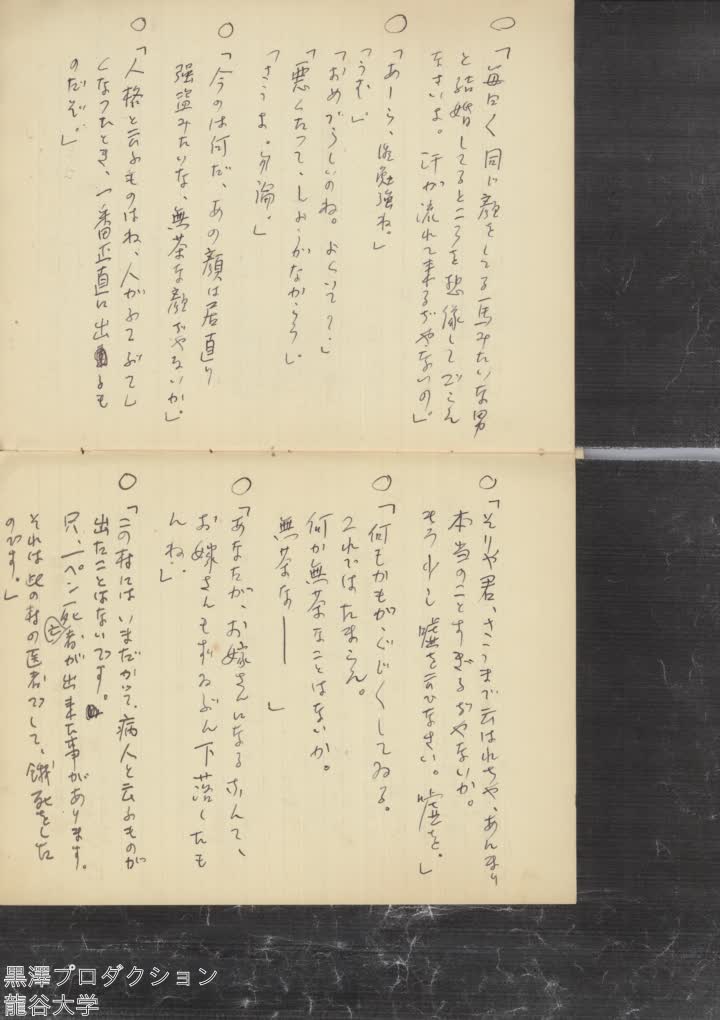 ○「毎日く同じ顔をしてる馬みたいな男
と結婚してるところを想像してごらん
なさいよ。汗が流れて来るぢやないの」
○「あーら、御勉強ね。」
「うむ」
「おめづらしいのね。よくいて？」
「悪くたって、しようがなからう」
「さうよ。勿論。」
○「今のは何だ、あの顔は居直り
強盗みたいな、無茶な顔ぢやないか。」
○「人格と云ふものはね、人がわてぶてし
くなつたとき、一番正直に出るも
のだぞ。」
○「そりや君、さうまで云はれちや、あんまり
本当のことすぎるぢやないか。
もう少し嘘を云ひなさい。嘘を。」
○「何もかもが、ぐじぐしてゐる。
これではたまらん。
何か無茶なことはないか。
無茶な――」
○「あなたが、お嫁さんになるなんて、
お嫁さんもずゐぶん下落したも
んね。」
○「この村にはいまだかつて、病人と云ふものが
出たことはないです。
只、一ペン死亡者が出来た事があります。
それは此の村の医者でして、餓死をした
のです。」
黒澤プロダクション
龍谷大学